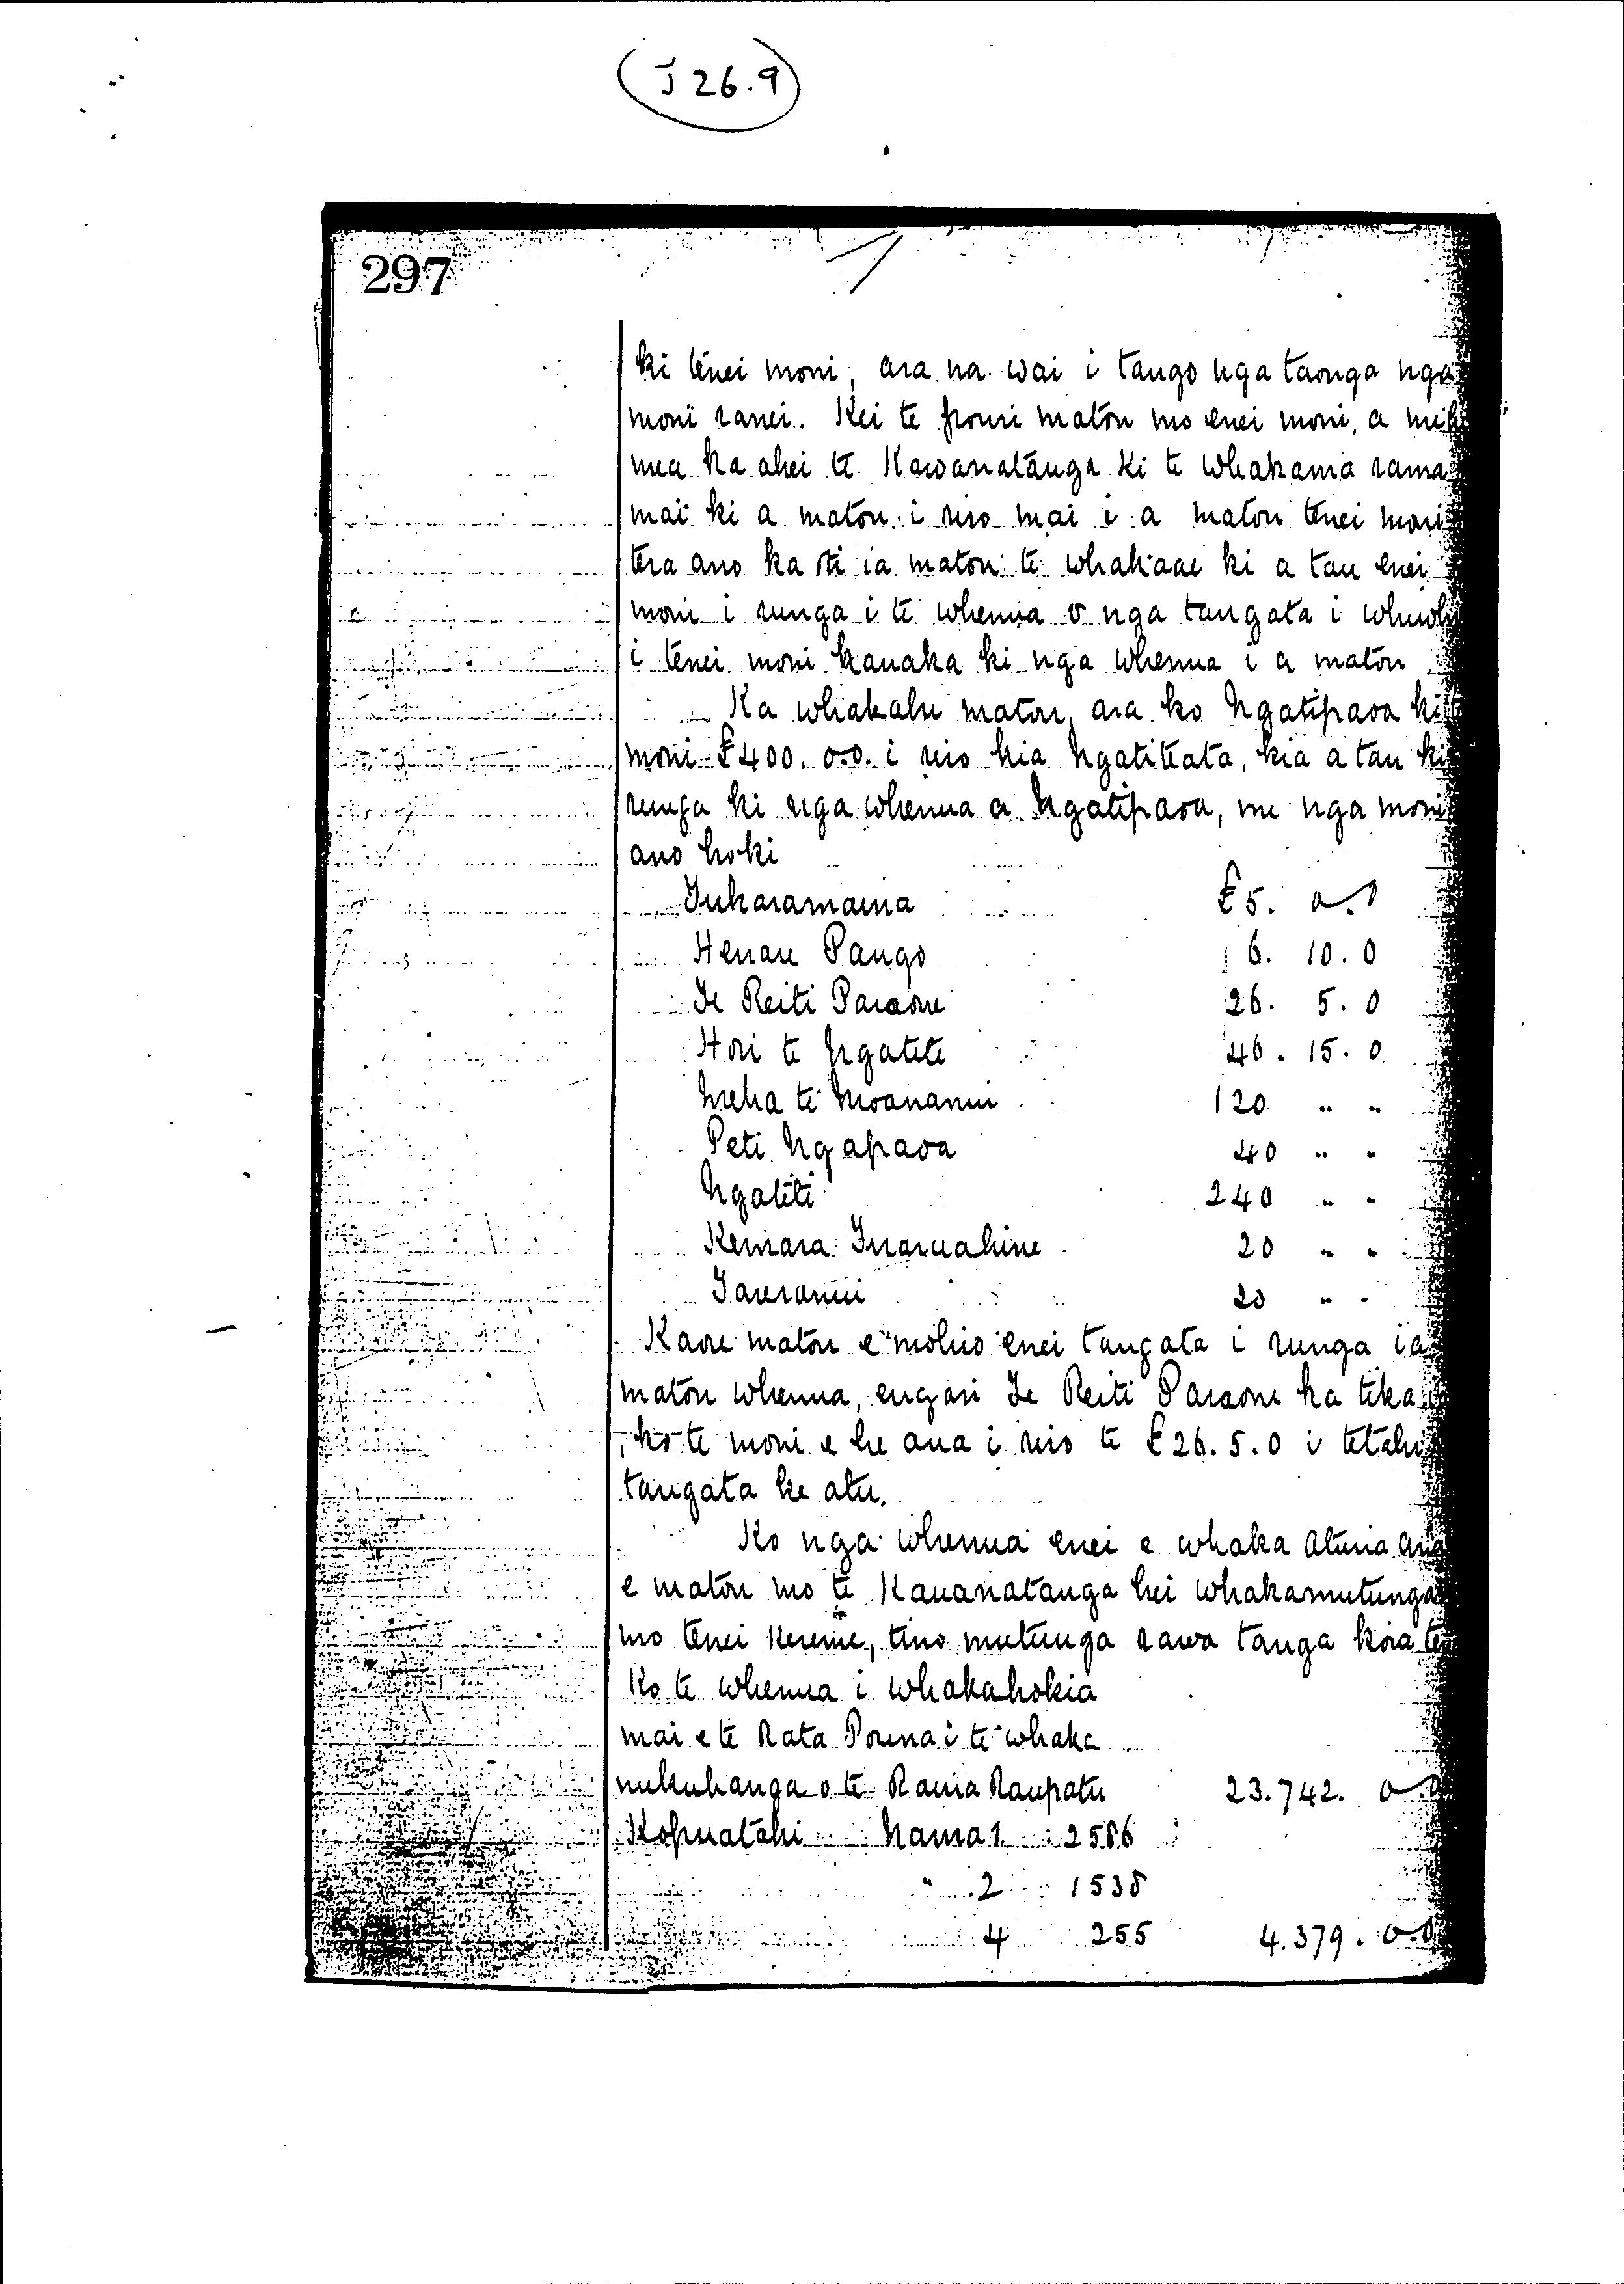 J 26.9
297
ki tenei moni, ara na wai i tango nga taonga nga
moni ranei. Kei te pouri matou mo enei moni, a
mea ka ahei te Kawanatanga ki te whakama rama
mai ki a matou i riro mai i a matou tenei moni
tera ano ka oti ia matou te whakaae ki a tau enei
moni i runga i te whenua o nga tangata i whiwhi
i tenei moni kauaka ki nga whenua i a matou
Ka whakahe matou, ara ko Ngatipaoa ki te
moni £400. 0.0. i riro kia Ngatiteata, kia a tau ki
runga ki nga whenua a Ngatipaoa, me nga moni
ano hoki
Tukaramaina £5. 0.0
Henare Pango 6. 10. 0
Te Reiti Paraone 26. 5. 0
Hori te Ngatete 46. 15. 0
Meha te Moananui 120 " "
Peti Ngapaoa 40 " "
Ngatiti 240 " "
Kemara Inaruahine 20 " "
Tareranui 20 " "
Kaore matou e mohio enei tangata i runga i a
matou whenua, engari Te Reiti Paraone ka tika
ko te moni e he ana i riro te £26. 5. 0 i tetahi
tangata ke atu.
Ko nga whenua enei e whaka aturia ana
e matou mo te Kauanatanga hei whakamutunga
mo tenei Kereme, tino mutunga rawa tanga koia
Ko te whenua i whakahokia
mai e te Rata Pouna i te whaka
nukuhanga o te Raina Raupatu 23.742. 0.0
Kopuatahi Nama 1. 2586
" 2 1538
4 255 4.379. 0.0